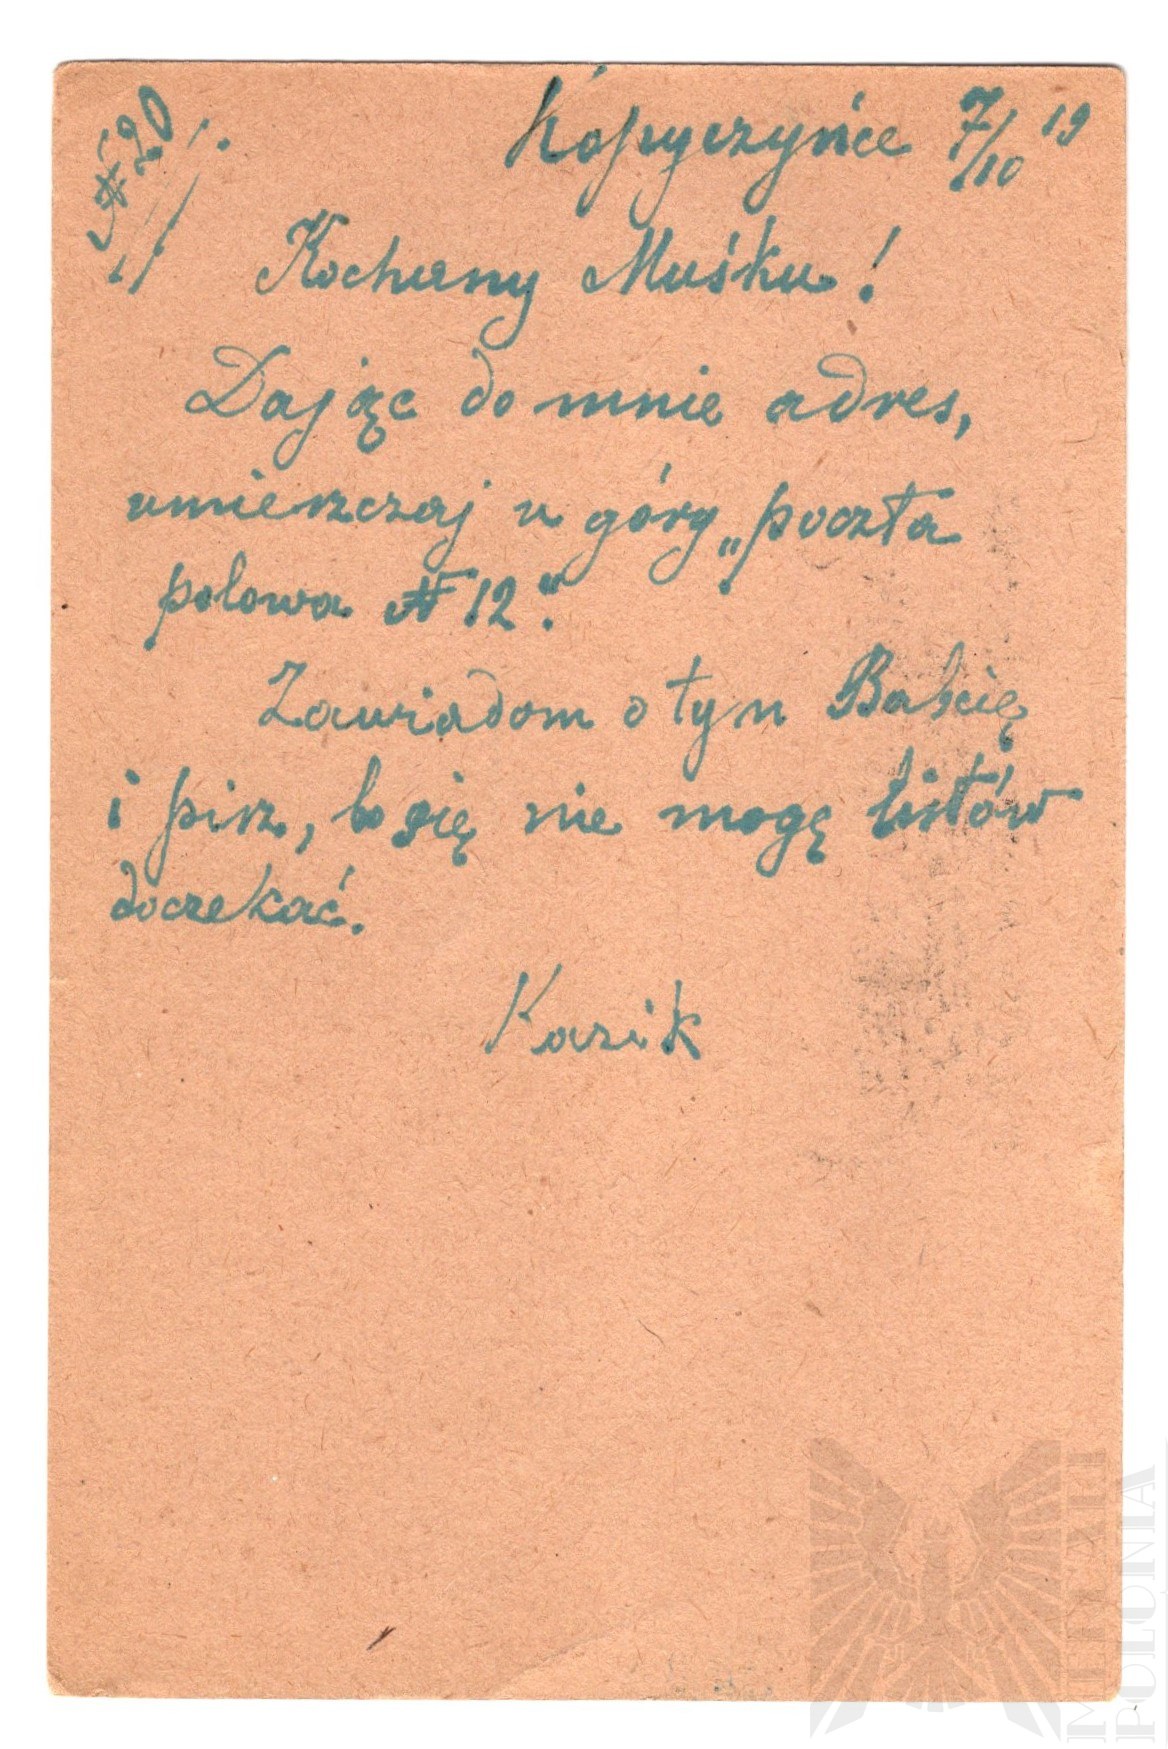 № 20
Kopyczyńce 7/10 19
Kochany Muśku!
Dając do mnie adres,
umieszczaj u góry „poczta
polowa № 12".
Zawiadom o tym Babcię
i pisz, bo się nie mogę listów
doczekać.
Kazik
MILITARIA
POLONIA